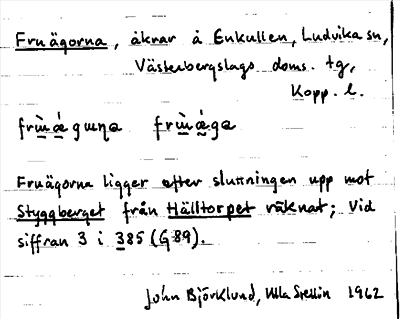 Fruägorna, åkrar å Enkullen, Ludvika sn,
Västerbergslags doms. tg,
Kopp. l.
frụ̀ä́gɯɳa frụ̀ä́ga
Fruägorna ligger efter sluttningen upp mot
Styggberget från Hälltorpet räknat; Vid
siffran 3 i 385 (G 89).
John Björklund, Ulla Stellin 1962